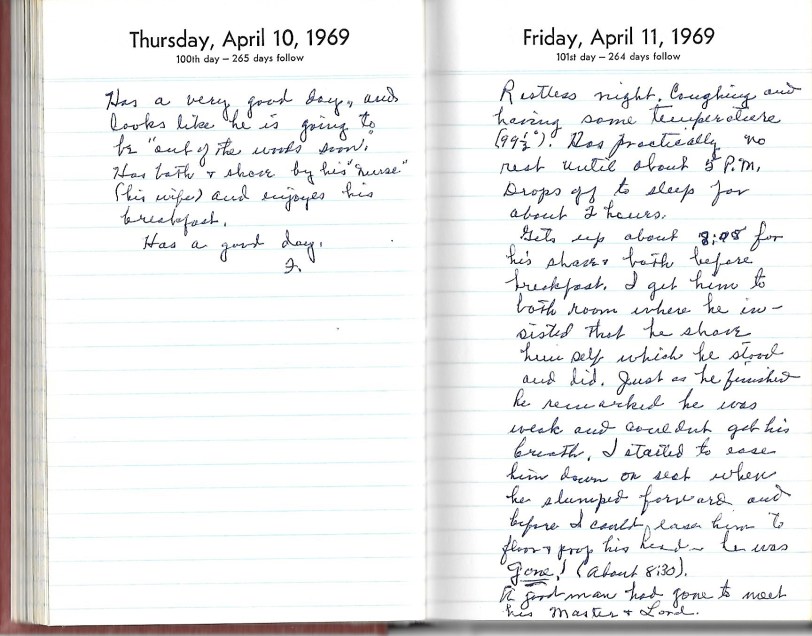 Thursday, April 10, 1969
100th day – 265 days follow
Has a very good day, and
looks like he is going to
be "out of the woods soon."
Has bath & shave by his "nurse"
(his wife) and enjoyes his
breakfast.
Has a good day.
F.
Friday, April 11, 1969
101st day – 264 days follow
Restless night. Coughing and
having some temperature
(99½°). Has practically no
rest until about 5 P.M.
Drops off to sleep for
about 2 hours.
Gets up about for
his shave & bath before
breakfast. I get him to
bath room where he in-
sisted that he shave
him self which he stood
and did. Just as he finished
he remarked he was
weak and couldnt get his
breath. I started to ease
him down on seat when
he slumped forward and
before I could ease him to
floor & prop his head – he was
Gone! (about 8:30).
A good man had gone to meet
his Master & Lord.